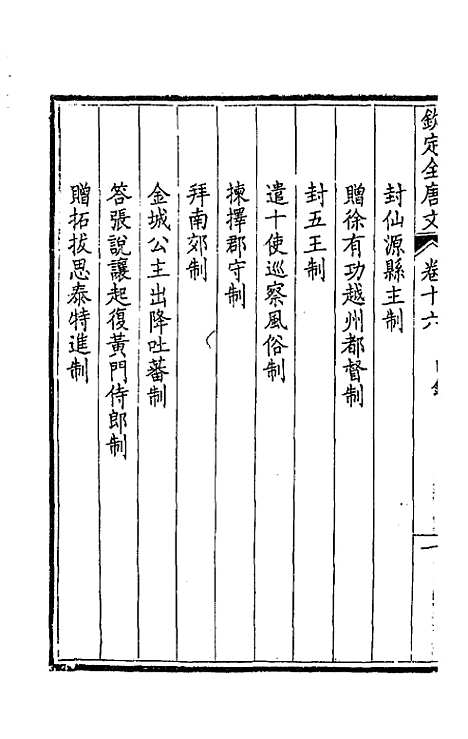 欽定全唐文 卷十六 目錄 一
封仙源縣主制
贈徐有功越州都督制
封五王制
遣十使巡察風俗制
揀擇郡守制
拜南郊制
金城公主出降吐蕃制
答張說讓起復黃門侍郎制
贈拓拔思泰特進制